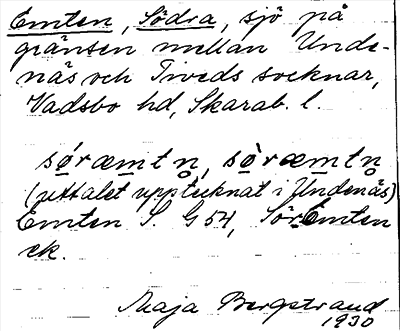 Emten, Södra, sjö på
gränsen mellan Unde-
näs och Tiveds socknar,
Vadsbo hd, Skarab. l.
søræmtn̥, sòræmtn̥
(uttalet upptecknat i Undenäs)
Emten S. G 54, Sör Emten
ek.
Maja Bergstrand
1930